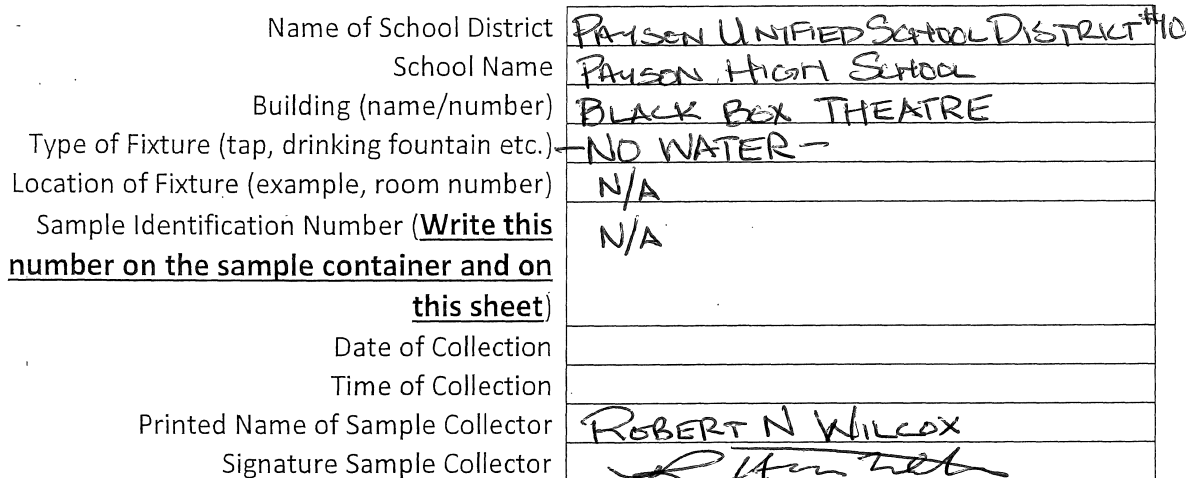 Name of School District PAYSON UNIFIED SCHOOL DISTRICT #10
School Name PAYSON HIGH SCHOOL
Building (name/number) BLACK BOX THEATRE
Type of Fixture (tap, drinking fountain etc.) -NO WATER-
Location of Fixture (example, room number) N/A
Sample Identification Number (Write this N/A
number on the sample container and on
this sheet)
Date of Collection
Time of Collection
Printed Name of Sample Collector ROBERT N WILCOX
Signature Sample Collector